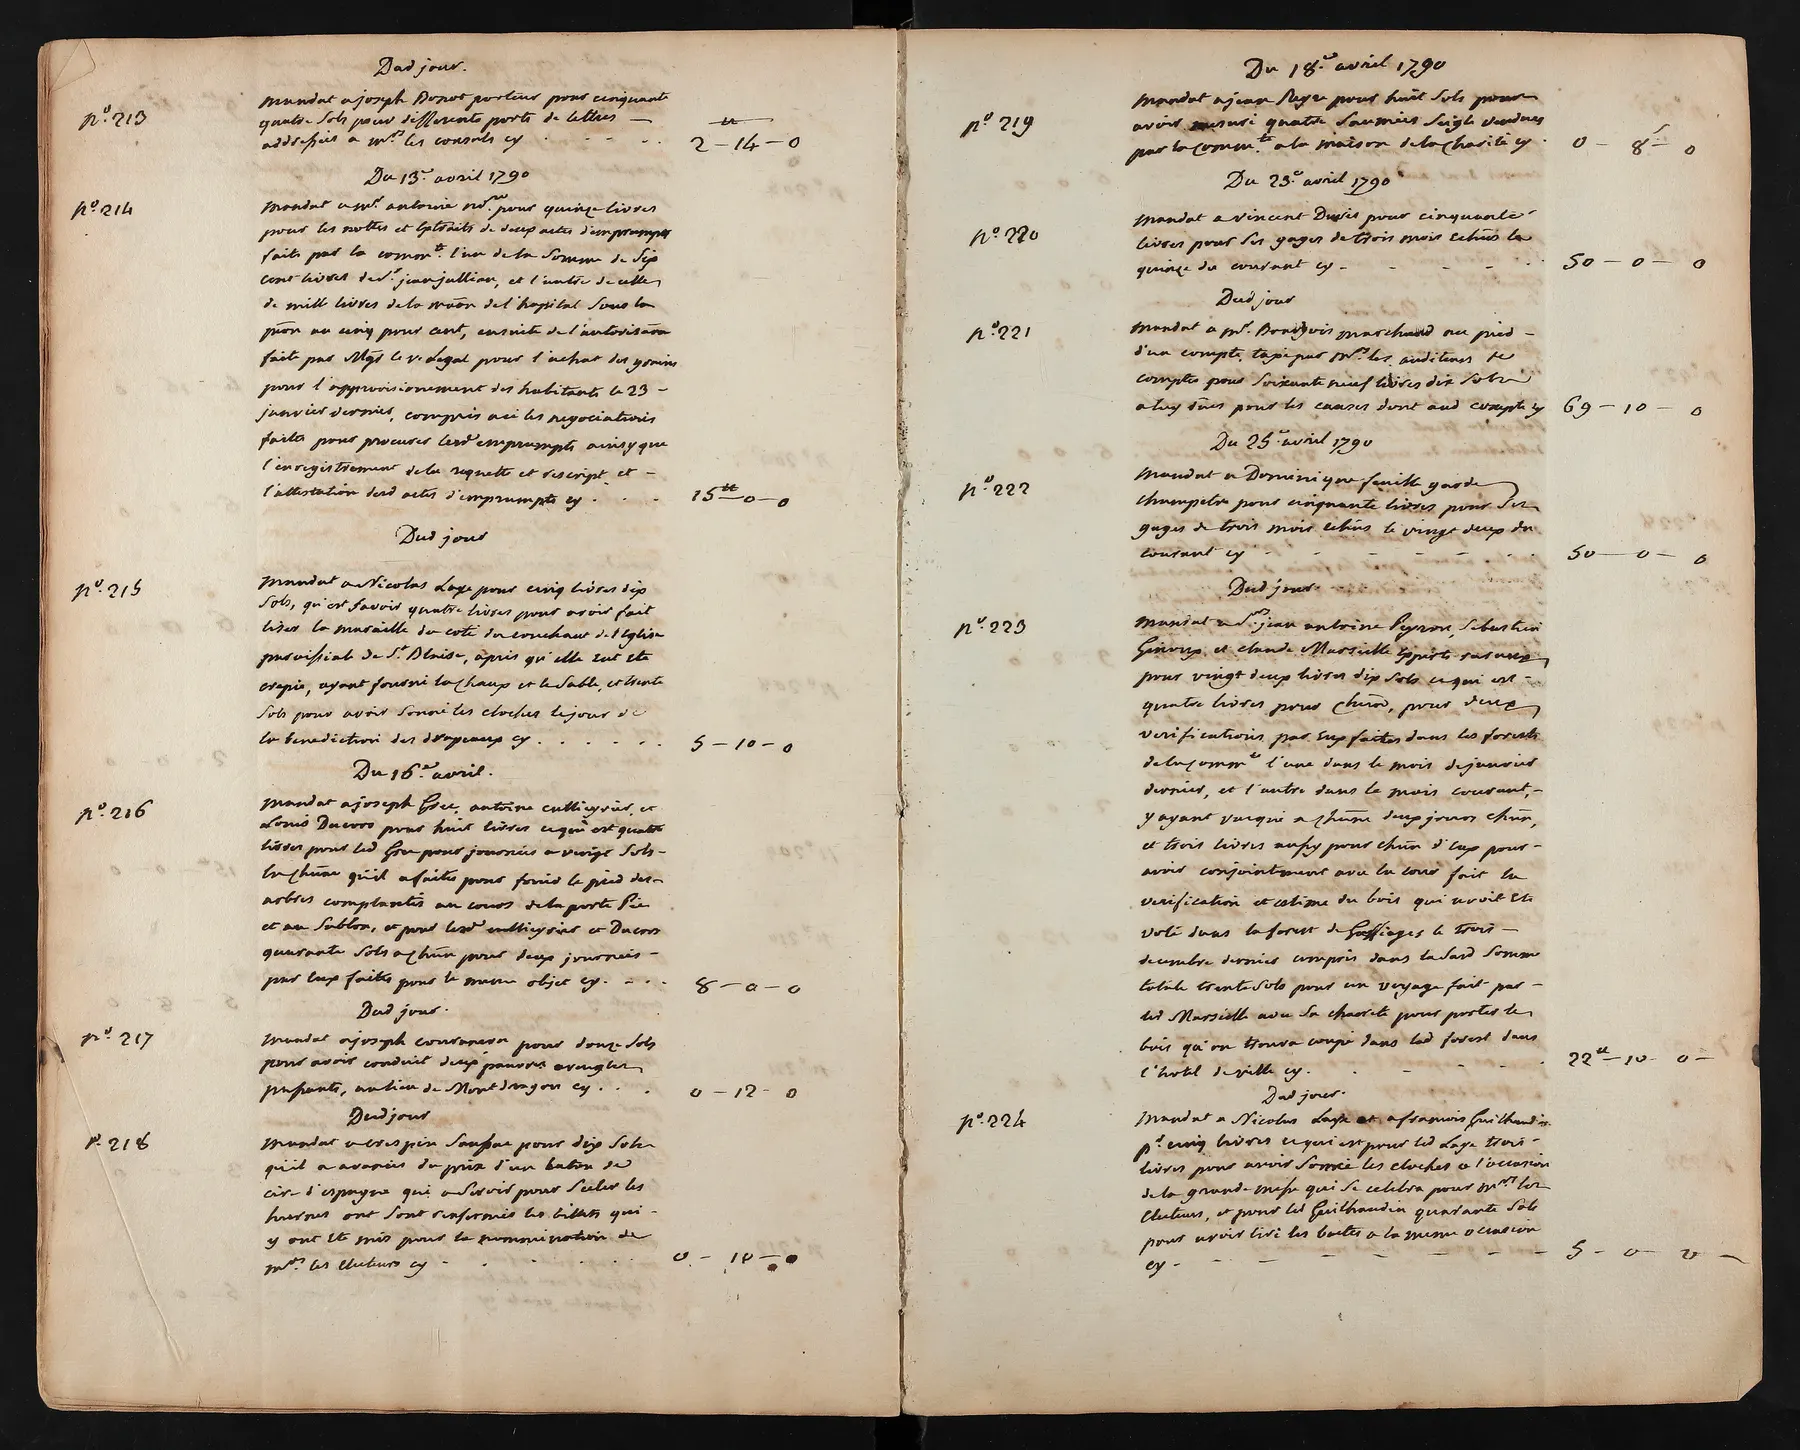 Dud jour.
n.º 213
Mandat a joseph Bonot porteur pour cinquante
quatre sols pour differents ports de lettres
addressés a mrs les consuls cy
2 - 14 - 0
Du 13.e avril 1790
n.º 214
Mandat a mr antoine nore. pour quinze livres
pour les nottes et Extraits de deux actes d'emprumpts
faits par la commté. l'un de la somme de six
cent livres de Sr jean jullian, et l'autre de celle
de mill livres de la mãon de l'hopital sous la
pñon au cinq pour cent, ensuite de l'autorisãon
faite par Mgr le v. Legat pour l'achat des grains
pour l'approvisionnement des habitants le 23
janvier dernier, compris aci les negociations
faites pour procurer lesd emprumpts ainsy que
l'enregistrement de la requette et rescript, et
l'attestation desd actes d'emprumpts cy
15 tt - 0 - 0
Dud jour
n.º 215
Mandat a Nicolas Laye pour cinq livres dix
sols, qui est savoir quatre livres pour avoir fait
liser la muraille du coté du couchant de l'Eglise
paroissiale de St Blaise, apres qu'elle Eut Ete
crepie, ayant fourni la chaux et le sable, et trente
sols pour avoir sonné les cloches le jour de
la benediction des drapeaux cy
5 - 10 - 0
Du 16.e avril.
n.º 216
Mandat a joseph Grec, antoine cuttieyrier, et
Louis Ducros pour huit livres ce qui est quatre
livres pour led Grec pour journées a vingt sols
la chũne qu'il a faites pour fouir le pied des
arbres complantés au cours de la porte Pie
et au Sablon, et pour lesd cuttieyrier et Ducros
quarante sols a chũn pour deux journées
par Eux faites pour le meme objet cy
8 - 0 - 0
Dud jour.
n.º 217
Mandat a joseph couranson pour douze sols
pour avoir conduit deux pauvres aveugles
passants, au lieu de Montdragon cy
0 - 12 - 0
Dud jour
n. 218
Mandat a crespin Saussac pour dix sols
qu'il a avancés du prix d'un baton de
cire d'espagne qui a servir pour sceler les
bources ont sont renfermés les billets qui
y ont Ete mis pour la nommination de
mrs les Electeurs cy
0 - 10 - 0
Du 18.e avril 1790
n.º 219
Mandat a jean Reyre pour huit sols pour
avoir mesuré quatre saumées seigle vendues
par la commté. a la maison de la charité cy
0 - 8 s - 0
Du 23.e avril 1790
n.º 220
Mandat a vincent Devis pour cinquante
livres pour ses gages de trois mois Echus le
quinze du courant cy
50 - 0 - 0
Dud jour
n.º 221
Mandat a mr. Bourgois marchand au pied
d'un compte taxé par mrs les auditeurs de
comptes pour soixante neuf livres dix sols
a luy dües pour les causes dont aud compte cy
69 - 10 - 0
Du 25.e avril 1790
n.º 222
Mandat a Dominique feuille garde
champetre pour cinquante livres pour ses
gages de trois mois Echus le vingt deux du
courant cy
50 - 0 - 0
Dud jour.
n.º 223
Mandat a Srs. jean antoine Peyron, Sebastien
Giroux, et claude Marseille Experts
pour vingt deux livres dix sols ce qui est
quatre livres pour chũn, pour deux
verifications par Eux faites dans les forests
de la commté l'une dans le mois de janvier
dernier, et l'autre dans le mois courant,
y ayant vacqué a chũne deux jours chũn,
et trois livres aussy pour chũn d'eux pour
avoir conjointement avec la cour fait la
verification et estime du bois qui avoit Ete
volé dans la forest de le trois
decembre dernier compris dans la susd somme
totale trente sols pour un voyage fait par
led Marseille avec sa charrete pour porter le
bois qu'on trouva coupé dans lad forest dans
l'hotel de ville cy.
22 tt - 10 - 0
Dud jour.
n.º 224
Mandat a Nicolas Laye et a francois Guilhaudin
pr cinq livres ce qui est pour led Laye trois
livres pour avoir sonné les cloches a l'occasion
de la grande messe qui se celebra pour mrs les
Electeurs, et pour led Guilhaudin quarante sols
pour avoir tiré les boetes a la meme occasion
cy
5 - 0 - 0